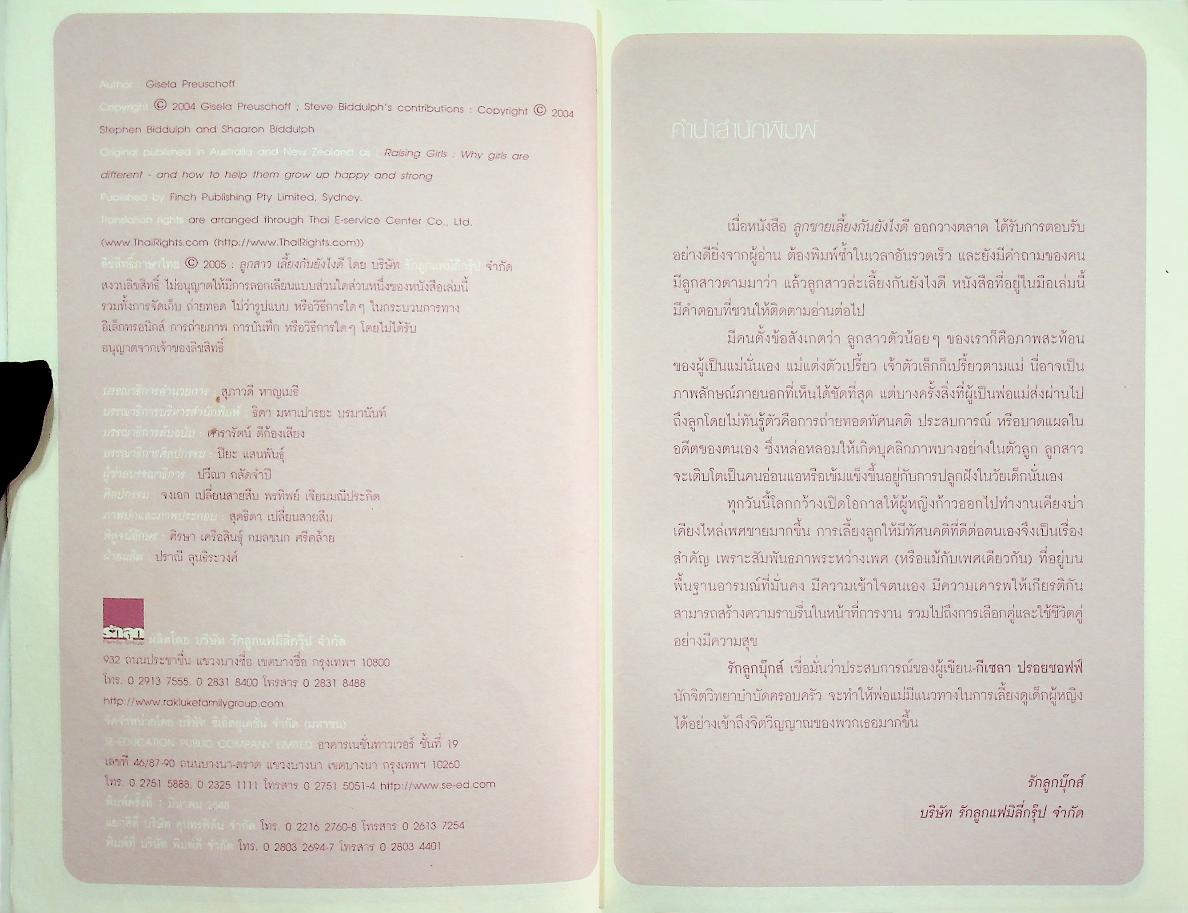 Author : Gisela Preuschoff
Copyright © 2004 Gisela Preuschoff ; Steve Biddulph's contributions : Copyright © 2004
Stephen Biddulph and Shaaron Biddulph
Original published in Australia and New Zealand as : Raising Girls : Why girls are
different - and how to help them grow up happy and strong
Published by Finch Publishing Pty Limited, Sydney.
Translation rights are arranged through Thai E-service Center Co., Ltd.
(www.ThaiRights.com (http://www.ThaiRights.com))
ลิขสิทธิ์ภาษาไทย © 2005 : ลูกสาว เลี้ยงกันยังไงดี โดย บริษัท รักลูกแฟมิลี่กรุ๊ป จำกัด
สงวนลิขสิทธิ์ ไม่อนุญาตให้มีการลอกเลียนแบบส่วนใดส่วนหนึ่งของหนังสือเล่มนี้
รวมทั้งการจัดเก็บ ถ่ายทอด ไม่ว่ารูปแบบ หรือวิธีการใดๆ ในกระบวนการทาง
อิเล็กทรอนิกส์ การถ่ายภาพ การบันทึก หรือวิธีการใดๆ โดยไม่ได้รับ
อนุญาตจากเจ้าของลิขสิทธิ์
บรรณาธิการอำนวยการ : สุภาวดี หาญเมธี
บรรณาธิการบริหารสำนักพิมพ์ : ธิดา มหาเปารยะ บรมานันท์
บรรณาธิการต้นฉบับ : ดารารัตน์ ตีก้องเสียง
บรรณาธิการศิลปกรรม : ปิยะ แสนพันธุ์
ผู้ช่วยบรรณาธิการ : ปวีณา กลัดจำปี
ศิลปกรรม : จงเอก เปลี่ยนสายสืบ พรทิพย์ เจียมมณีประกิต
ภาพปกและภาพประกอบ : สุดธิดา เปลี่ยนสายสืบ
พิสูจน์อักษร : ศิรษา เครือสินธุ์ กมลชนก ศรีคล้าย
ฝ่ายผลิต : ปราณี ลุนธิระวงศ์
รักลูก ผลิตโดย บริษัท รักลูกแฟมิลี่กรุ๊ป จำกัด
932 ถนนประชาชื่น แขวงบางซื่อ เขตบางซื่อ กรุงเทพฯ 10800
โทร. 0 2913 7555, 0 2831 8400 โทรสาร 0 2831 8488
http://www.raklukefamilygroup.com
จัดจำหน่ายโดย บริษัท ซีเอ็ดยูเคชั่น จำกัด (มหาชน)
SE-EDUCATION PUBLIC COMPANY LIMITED อาคารเนชั่นทาวเวอร์ ชั้นที่ 19
เลขที่ 46/87-90 ถนนบางนา-ตราด แขวงบางนา เขตบางนา กรุงเทพฯ 10260
โทร. 0 2751 5888, 0 2325 1111 โทรสาร 0 2751 5051-4 http://www.se-ed.com
พิมพ์ครั้งที่ 1 มีนาคม 2548
แยกสีที่ บริษัท จำกัด โทร. 0 2216 2760-8 โทรสาร 0 2613 7254
พิมพ์ที่ บริษัท พิมพ์ดี จำกัด โทร. 0 2803 2694-7 โทรสาร 0 2803 4401
คำนำสำนักพิมพ์
เมื่อหนังสือ ลูกชายเลี้ยงกันยังไงดี ออกวางตลาด ได้รับการตอบรับ
อย่างดียิ่งจากผู้อ่าน ต้องพิมพ์ซ้ำในเวลาอันรวดเร็ว และยังมีคำถามของคน
มีลูกสาวตามมาว่า แล้วลูกสาวล่ะเลี้ยงกันยังไงดี หนังสือที่อยู่ในมือเล่มนี้
มีคำตอบที่ชวนให้ติดตามอ่านต่อไป
มีคนตั้งข้อสังเกตว่า ลูกสาวตัวน้อยๆ ของเราก็คือภาพสะท้อน
ของผู้เป็นแม่นั่นเอง แม่แต่งตัวเปรี้ยว เจ้าตัวเล็กก็เปรี้ยวตามแม่ นี่อาจเป็น
ภาพลักษณ์ภายนอกที่เห็นได้ชัดที่สุด แต่บางครั้งสิ่งที่ผู้เป็นพ่อแม่ส่งผ่านไป
ถึงลูกโดยไม่ทันรู้ตัวคือการถ่ายทอดทัศนคติ ประสบการณ์ หรือบาดแผลใน
อดีตของตนเอง ซึ่งหล่อหลอมให้เกิดบุคลิกภาพบางอย่างในตัวลูก ลูกสาว
จะเติบโตเป็นคนอ่อนแอหรือเข้มแข็งขึ้นอยู่กับการปลูกฝังในวัยเด็กนั่นเอง
ทุกวันนี้โลกกว้างเปิดโอกาสให้ผู้หญิงก้าวออกไปทำงานเคียงบ่า
เคียงไหล่เพศชายมากขึ้น การเลี้ยงลูกให้มีทัศนคติที่ดีต่อตนเองจึงเป็นเรื่อง
สำคัญ เพราะสัมพันธภาพระหว่างเพศ (หรือแม้กับเพศเดียวกัน) ที่อยู่บน
พื้นฐานอารมณ์ที่มั่นคง มีความเข้าใจตนเอง มีความเคารพให้เกียรติกัน
สามารถสร้างความราบรื่นในหน้าที่การงาน รวมไปถึงการเลือกคู่และใช้ชีวิตคู่
อย่างมีความสุข
รักลูกบุ๊กส์ เชื่อมั่นว่าประสบการณ์ของผู้เขียน-กีเซลา ปรอยชอฟฟ์
นักจิตวิทยาบำบัดครอบครัว จะทำให้พ่อแม่มีแนวทางในการเลี้ยงดูเด็กผู้หญิง
ได้อย่างเข้าถึงจิตวิญญาณของพวกเธอมากขึ้น
รักลูกบุ๊กส์
บริษัท รักลูกแฟมิลี่กรุ๊ป จำกัด